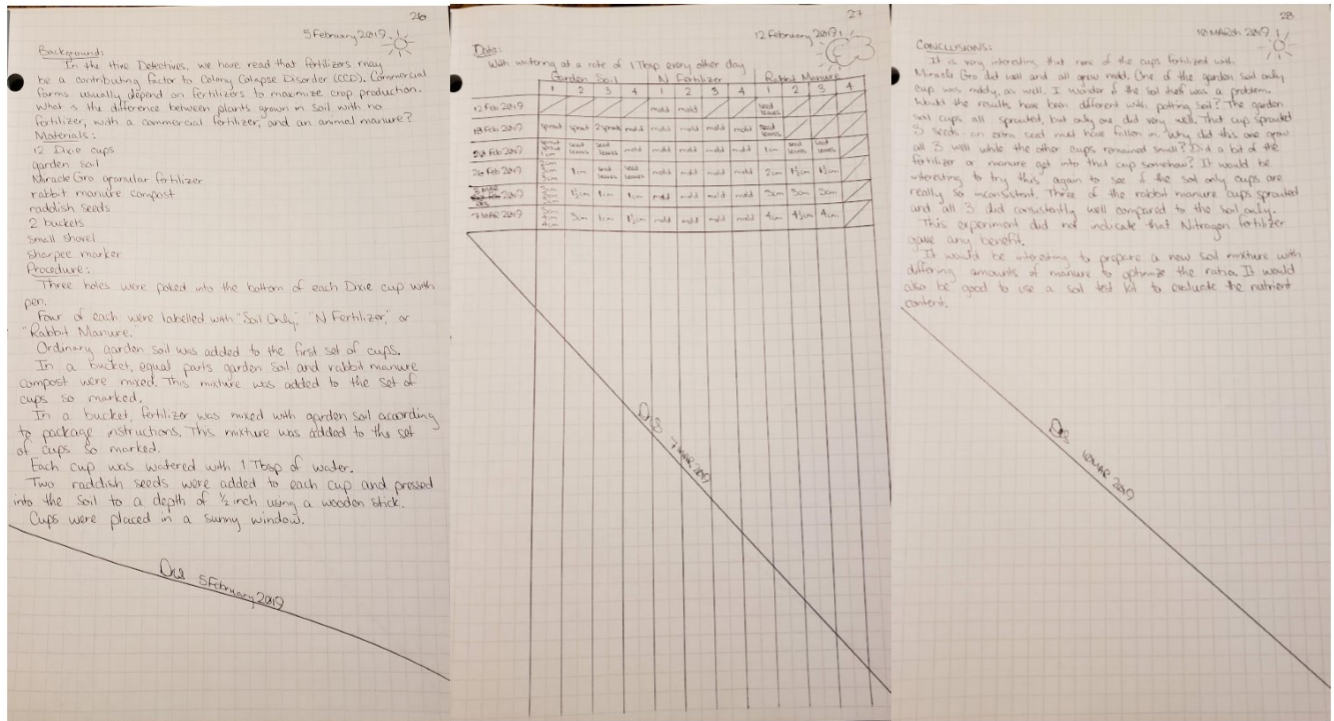 26
5 February 2019
Background:
In the Hive Detectives, we have read that fertilizers may
be a contributing factor to Colony Colapse Disorder (CCD). Commercial
farms usually depend on fertilizers to maximize crop production.
What is the difference between plants grown in soil with no
fertilizer, with a commercial fertilizer, and an animal manure?
Materials:
12 Dixie cups
garden soil
Miracle Gro granular fertilizer
rabbit manure compost
raddish seeds
2 buckets
small shovel
sharpee marker
Procedure:
Three holes were poked into the bottom of each Dixie cup with
pen.
Four of each were labelled with "Soil Only," "N Fertilizer," or
"Rabbit Manure."
Ordinary garden soil was added to the first set of cups.
In a bucket, equal parts garden soil and rabbit manure
compost were mixed. This mixture was added to the set of
cups so marked.
In a bucket, fertilizer was mixed with garden soil according
to package instructions. This mixture was added to the set
of cups so marked.
Each cup was watered with 1 Tbsp of water.
Two raddish seeds were added to each cup and pressed
into the soil to a depth of ½ inch using a wooden stick.
Cups were placed in a sunny window.
5 February 2019
27
12 February 2019
Data:
With watering at a rate of 1 Tbsp every other day
Garden Soil N Fertilizer Rabbit Manure
1 2 3 4 1 2 3 4 1 2 3 4
12 Feb 2019 mold mold seed leaves
18 Feb 2019 sprout sprout 2 sprouts mold mold mold mold mold seed leaves
Feb 2019 1cm seed leaves seed leaves mold mold mold mold mold 1cm seed leaves seed leaves
26 Feb 2019 1cm seed leaves seed leaves mold mold mold mold 2cm 1½cm 1½cm
1½cm 1cm 1cm mold mold mold mold 3cm 3cm 3cm
7 MAR 2019 4cm 3cm 1cm 1½cm mold mold mold mold 4cm 4½cm 4cm
7 MAR 2019
28
10 MARCH 2019
CONCLUSIONS:
It is very interesting that none of the cups fertilized with
Miracle Gro did well and all grew mold. One of the garden soil only
cup was moldy, as well. I wonder if the soil itself was a problem.
Would the results have been different with potting soil? The garden
soil cups all sprouted, but only one did very well. That cup sprouted
3 seeds - an extra seed must have fallen in. Why did this one grow
all 3 well while the other cups remained small? Did a bit of the
fertilizer or manure get into that cup somehow? It would be
interesting to try this again to see if the soil only cups are
really so inconsistent. Three of the rabbit manure cups sprouted
and all 3 did consistently well compared to the soil only.
This experiment did not indicate that Nitrogen fertilizer
gave any benefit.
It would be interesting to prepare a new soil mixture with
differing amounts of manure to optimize the ratio. It would
also be good to use a soil test kit to evaluate the nutrient
content.
10 MAR 2019